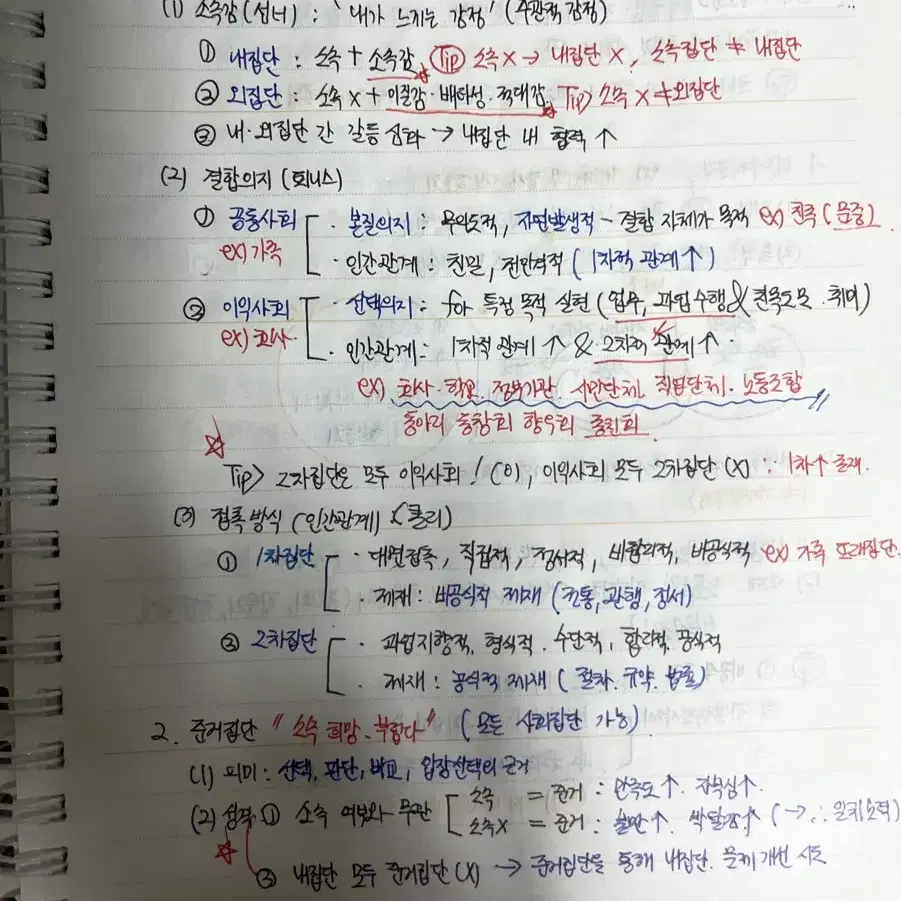 (1) 소속감 (섬너) : '내가 느끼는 감정' (주관적 감정)
① 내집단 : 소속 + 소속감 Tip 소속 X → 내집단 X, 소속집단 ≠ 내집단
② 외집단 : 소속 X + 이질감·배타성·적대감 Tip> 소속 X ≠ 외집단
③ 내·외집단 간 갈등 심화 → 내집단 내 협력 ↑
(2) 결합의지 (퇴니스)
① 공동사회 · 본질의지 : 무의도적, 자연발생적 - 결합 자체가 목적 ex) 친족 (문중)
ex) 가족 · 인간관계 : 친밀, 전인격적 (1차적 관계 ↑)
② 이익사회 · 선택의지 : for 특정 목적 실현 (업무, 과업수행 & 친목도모·취미)
ex) 회사 · 인간관계 : 1차적 관계 ↑ & 2차적 관계 ↑
ex) 회사·학교·정부기관·시민단체·직업단체·노동조합
동아리 동창회 향우회 종친회
Tip> 2차집단은 모두 이익사회! (O), 이익사회 모두 2차집단 (X) ∵ 1차↑ 존재.
(3) 접촉방식 (인간관계) (쿨리)
① 1차집단 · 대면접촉, 직접적, 정서적, 비합리적, 비공식적 ex) 가족 또래집단
· 제재 : 비공식적 제재 (전통, 관행, 정서)
② 2차집단 · 과업지향적, 형식적, 수단적, 합리적, 공식적
· 제재 : 공식적 제재 (절차·규약·법률)
2. 준거집단 "소속 희망·부럽다" (모든 사회집단 가능)
(1) 의미 : 선택, 판단, 비교, 입장선택의 근거
(2) 성격 ① 소속 여부와 무관 소속 = 준거 : 만족도↑ 자부심↑
소속X = 준거 : 불만↑ 박탈감↑ (→ : 일치노력)
② 내집단 모두 준거집단 (X) → 준거집단을 통해 내집단 문제 개선 시도